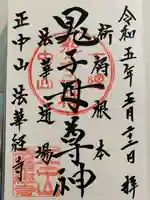 令和五年五月二十二日 拝
祈祷根本
鬼子母尊神
法華道場
正中山 法華経寺